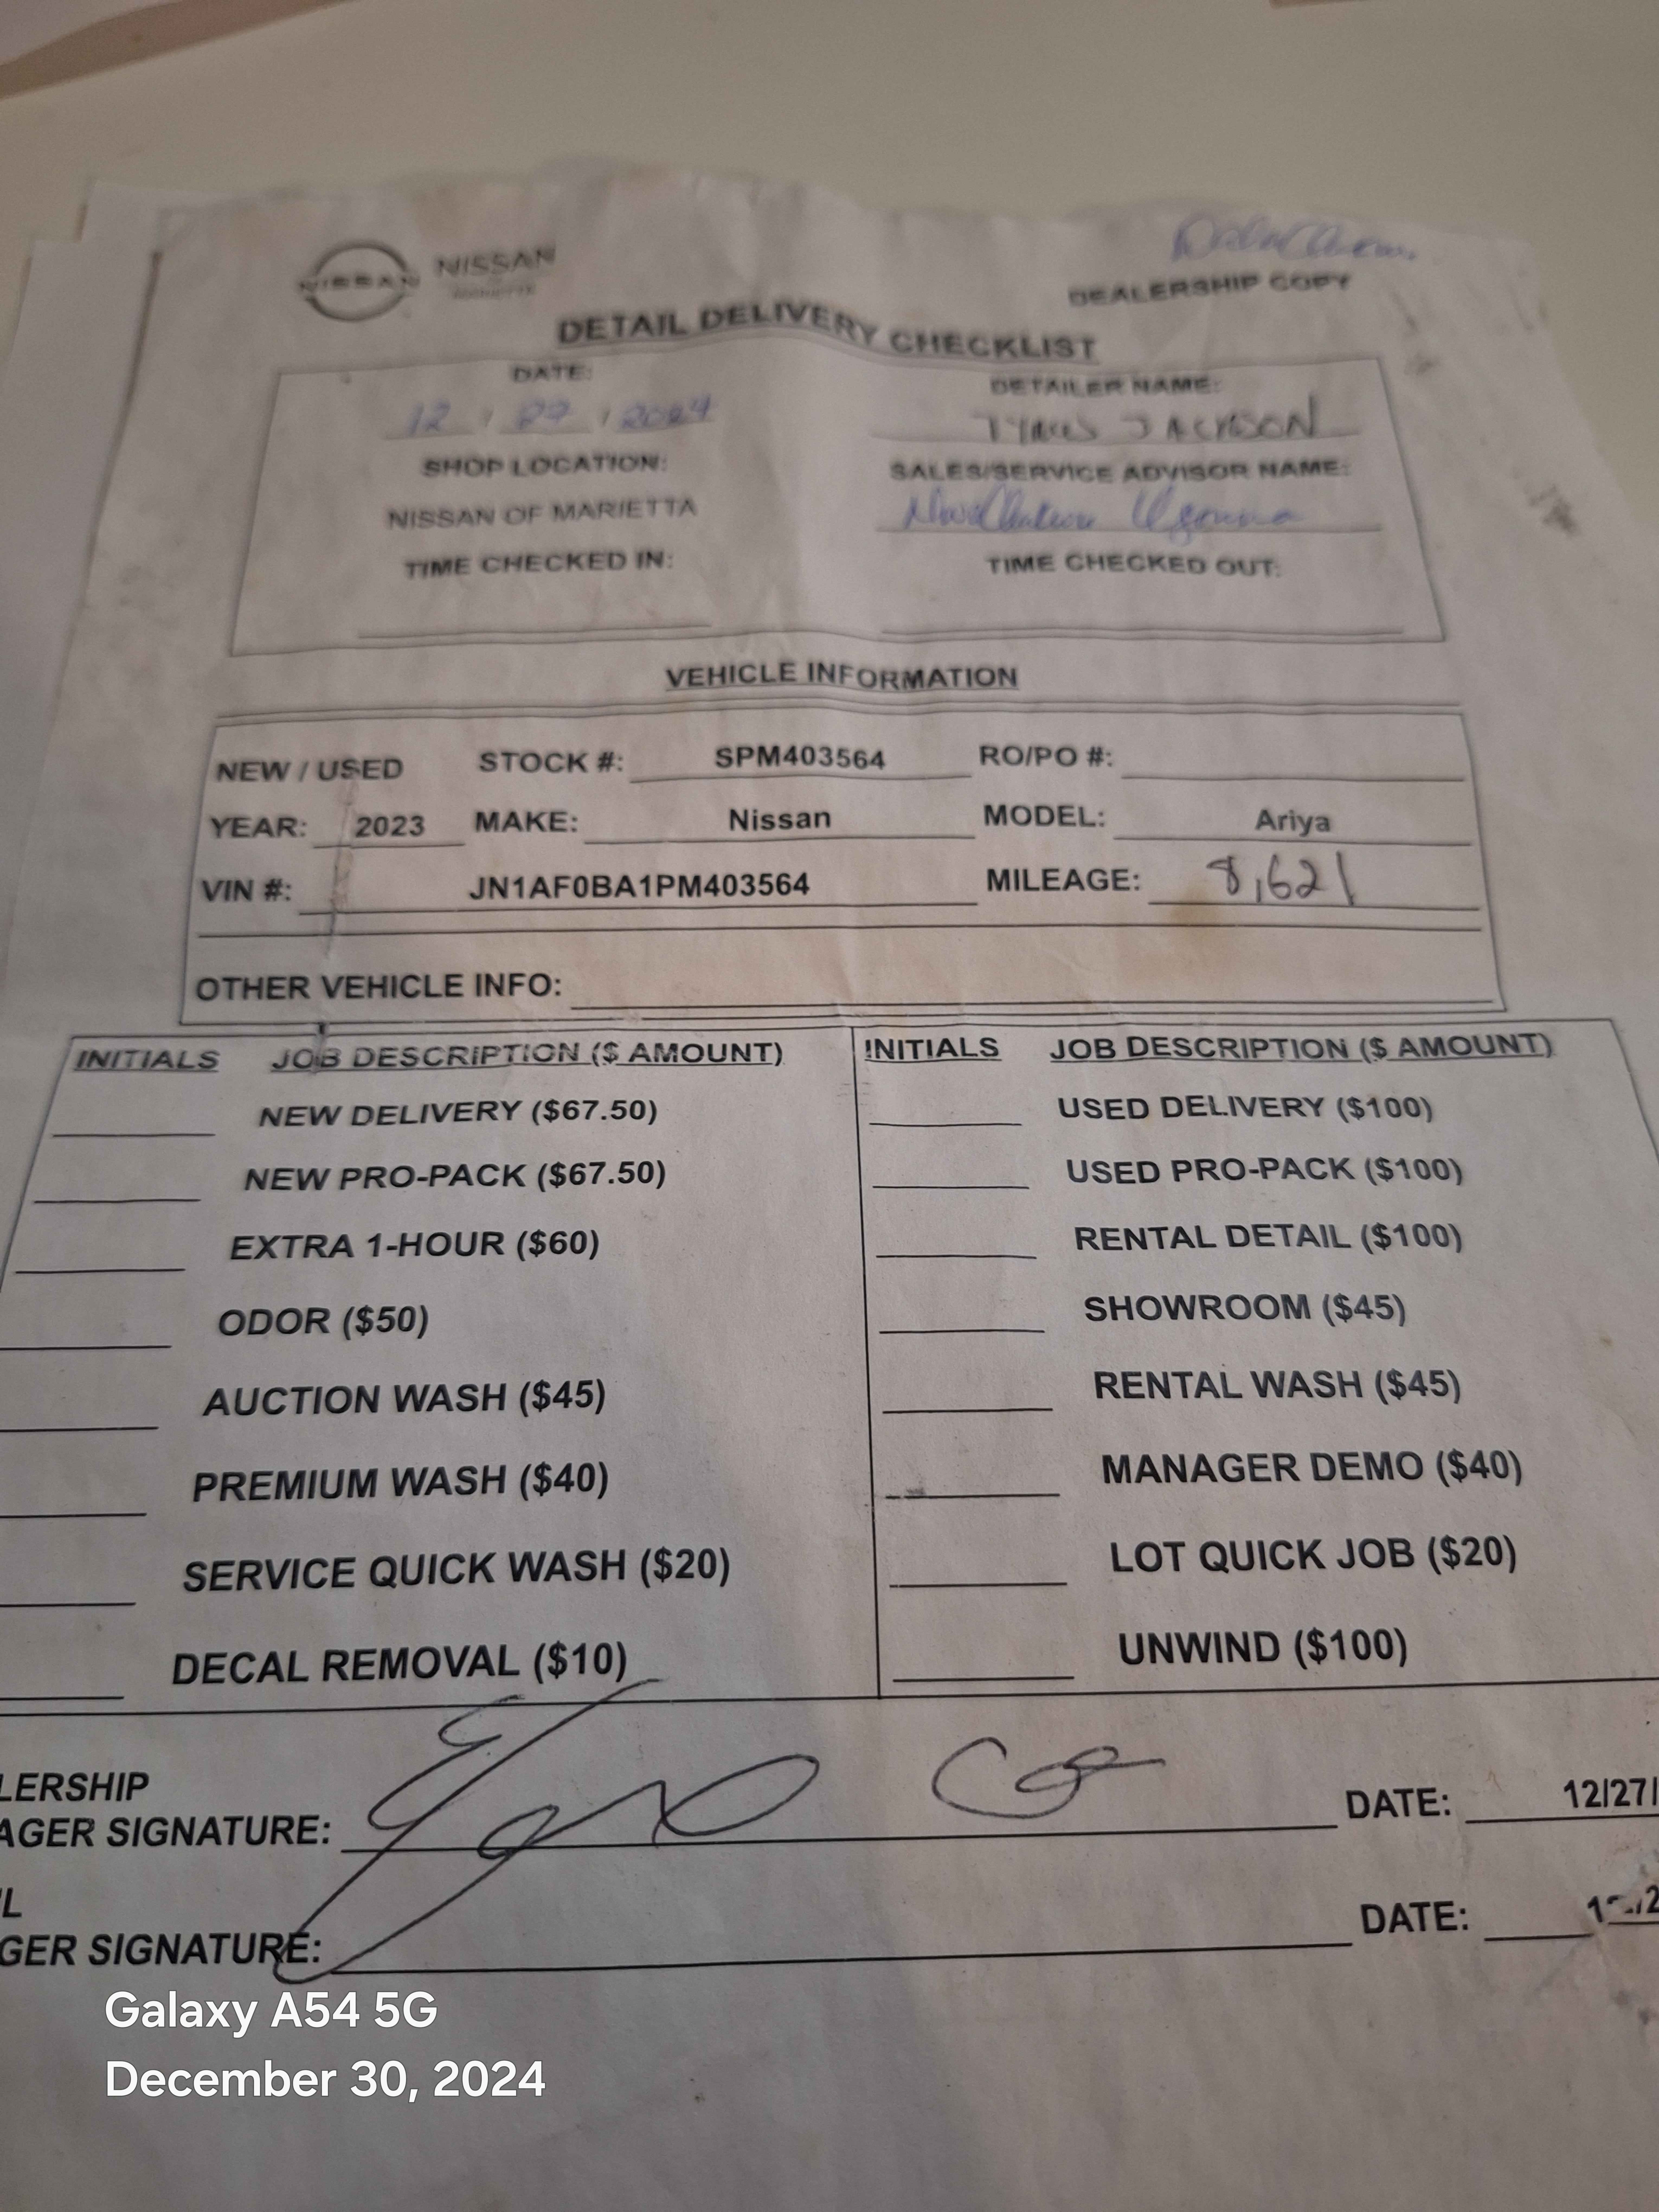 NISSAN NISSAN
OF MARIETTA
DEALERSHIP COPY
DETAIL DELIVERY CHECKLIST
DATE: DETAILER NAME:
12 / 27 / 2024 JACKSON
SHOP LOCATION: SALES/SERVICE ADVISOR NAME:
NISSAN OF MARIETTA
TIME CHECKED IN: TIME CHECKED OUT:
VEHICLE INFORMATION
NEW / USED STOCK #: SPM403564 RO/PO #:
YEAR: 2023 MAKE: Nissan MODEL: Ariya
VIN #: JN1AF0BA1PM403564 MILEAGE: 8,621
OTHER VEHICLE INFO:
INITIALS JOB DESCRIPTION ($ AMOUNT) INITIALS JOB DESCRIPTION ($ AMOUNT)
NEW DELIVERY ($67.50) USED DELIVERY ($100)
NEW PRO-PACK ($67.50) USED PRO-PACK ($100)
EXTRA 1-HOUR ($60) RENTAL DETAIL ($100)
ODOR ($50) SHOWROOM ($45)
AUCTION WASH ($45) RENTAL WASH ($45)
PREMIUM WASH ($40) MANAGER DEMO ($40)
SERVICE QUICK WASH ($20) LOT QUICK JOB ($20)
DECAL REMOVAL ($10) UNWIND ($100)
LERSHIP
AGER SIGNATURE: DATE: 12/27/
L
GER SIGNATURE: DATE:
Galaxy A54 5G
December 30, 2024